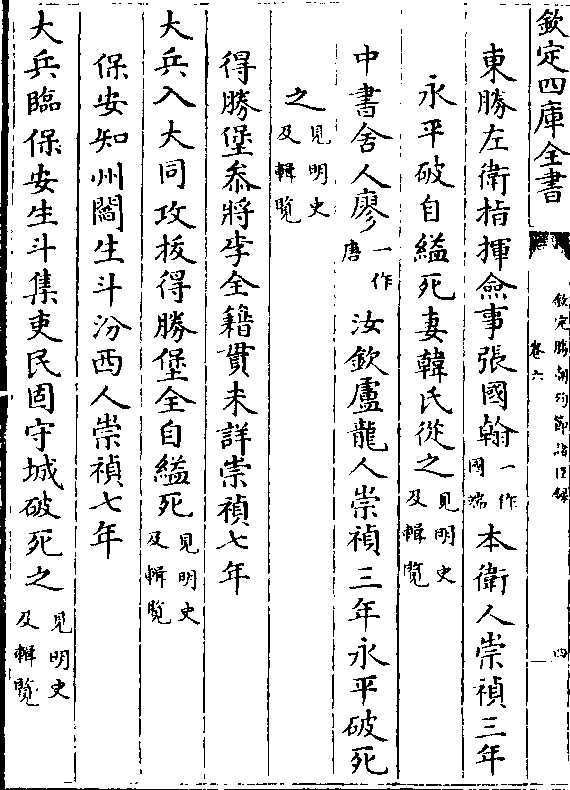 欽定四庫全書
欽定勝朝殉節諸臣錄
卷六
四
東勝左衛指揮僉事張國翰一作國瑞本衛人崇禎三年
永平破自縊死妻韓氏從之見明史及輯覽
中書舍人廖一作唐汝欽盧龍人崇禎三年永平破死
之見明史及輯覽
得勝堡叅將李全籍貫未詳崇禎七年
大兵入大同攻拔得勝堡全自縊死見明史及輯覽
保安知州閻生斗汾西人崇禎七年
大兵臨保安生斗集吏民固守城破死之見明史及輯覽